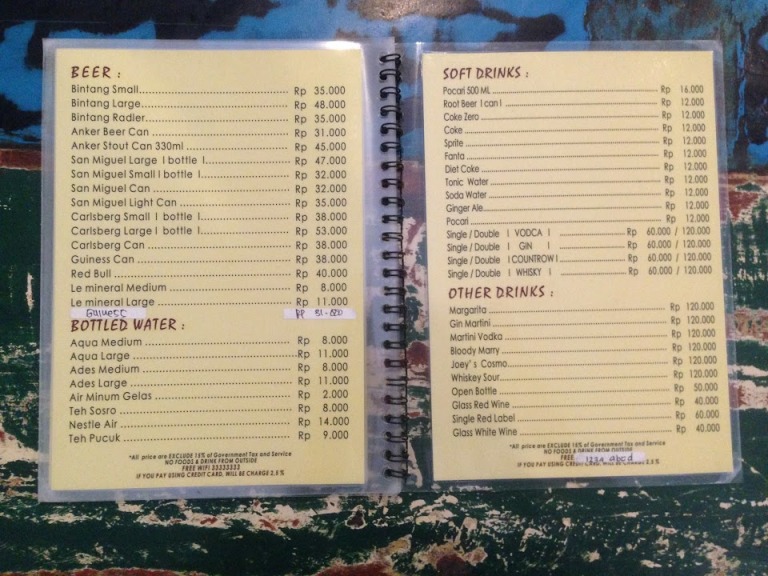 BEER :
Bintang Small Rp 35.000
Bintang Large Rp 48.000
Bintang Radler Rp 35.000
Anker Beer Can Rp 31.000
Anker Stout Can 330ml Rp 45.000
San Miguel Large ( bottle ) Rp 47.000
San Miguel Small ( bottle ) Rp 32.000
San Miguel Can Rp 32.000
San Miguel Light Can Rp 35.000
Carlsberg Small ( bottle ) Rp 38.000
Carlsberg Large ( bottle ) Rp 53.000
Carlsberg Can Rp 38.000
Guiness Can Rp 38.000
Red Bull Rp 40.000
Le mineral Medium Rp 8.000
Le mineral Large Rp 11.000
Rp
BOTTLED WATER :
Aqua Medium Rp 8.000
Aqua Large Rp 11.000
Ades Medium Rp 8.000
Ades Large Rp 11.000
Air Minum Gelas Rp 2.000
Teh Sosro Rp 8.000
Nestle Air Rp 14.000
Teh Pucuk Rp 9.000
*All price are EXCLUDE 15% of Government Tax and Service
NO FOODS & DRINK FROM OUTSIDE
FREE WIFI 33333333
IF YOU PAY USING CREDIT CARD, WILL BE CHARGE 2,5 %
SOFT DRINKS :
Pocari 500 ML Rp 16.000
Root Beer ( can ) Rp 12.000
Coke Zero Rp 12.000
Coke Rp 12.000
Sprite Rp 12.000
Fanta Rp 12.000
Diet Coke Rp 12.000
Tonic Water Rp 12.000
Soda Water Rp 12.000
Ginger Ale Rp 12.000
Pocari Rp 12.000
Single / Double ( VODCA ) Rp 60.000 / 120.000
Single / Double ( GIN ) Rp 60.000 / 120.000
Single / Double ( COUNTROW ) Rp 60.000 / 120.000
Single / Double ( WHISKY ) Rp 60.000 / 120.000
OTHER DRINKS :
Margarita Rp 120.000
Gin Martini Rp 120.000
Martini Vodka Rp 120.000
Bloody Marry Rp 120.000
Joey's Cosmo Rp 120.000
Whiskey Sour Rp 120.000
Open Bottle Rp 50.000
Glass Red Wine Rp 40.000
Single Red Label Rp 60.000
Glass White Wine Rp 40.000
*All price are EXCLUDE 15% of Government Tax and Service
NO FOODS & DRINK FROM OUTSIDE
FREE 1234 abcd
IF YOU PAY USING CREDIT CARD, WILL BE CHARGE 2,5 %